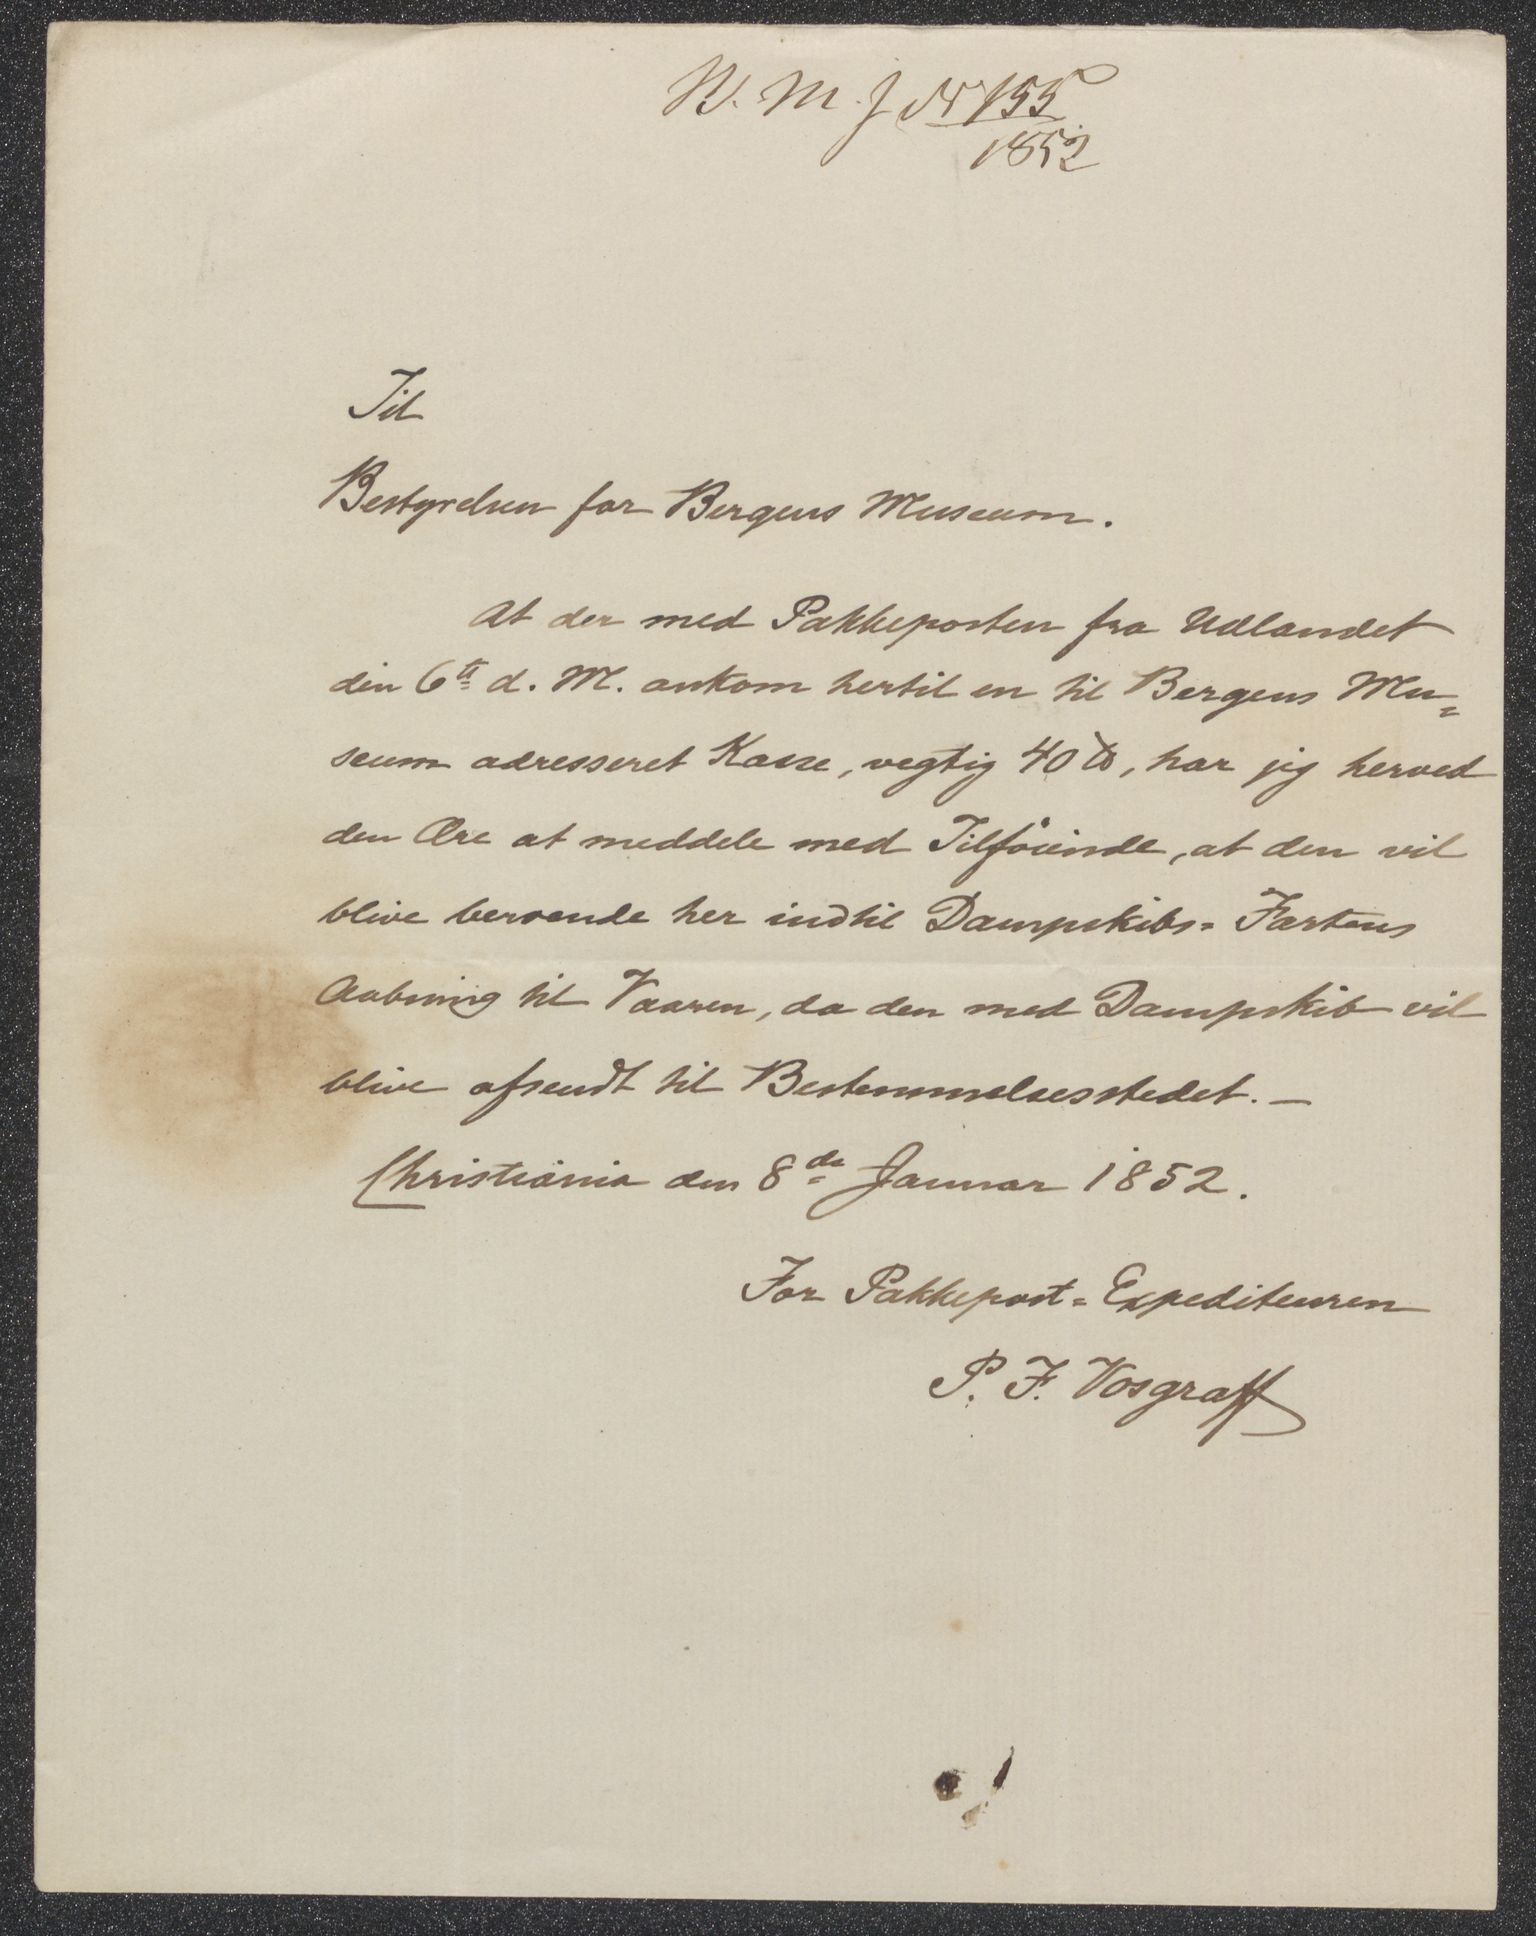 B. M. J. № 155
1852
Til
Bestyrelsen for Bergens Museum.
At der med Pakkeposten fra Udlandet
den 6te d. M. ankom hertil en til Bergens Mu=
seum adresseret Kasse, vegtig 40 ℔, har jeg herved
den Ære at meddele med Tilføiende, at den vil
blive beroende her indtil Dampskibs=Fartens
Aabning til Vaaren, da den med Dampskib vil
blive afsendt til Bestemmelsesstedet. —
Christiania den 8de Januar 1852.
For Pakkepost=Expediteuren
P. F. Vosgraff